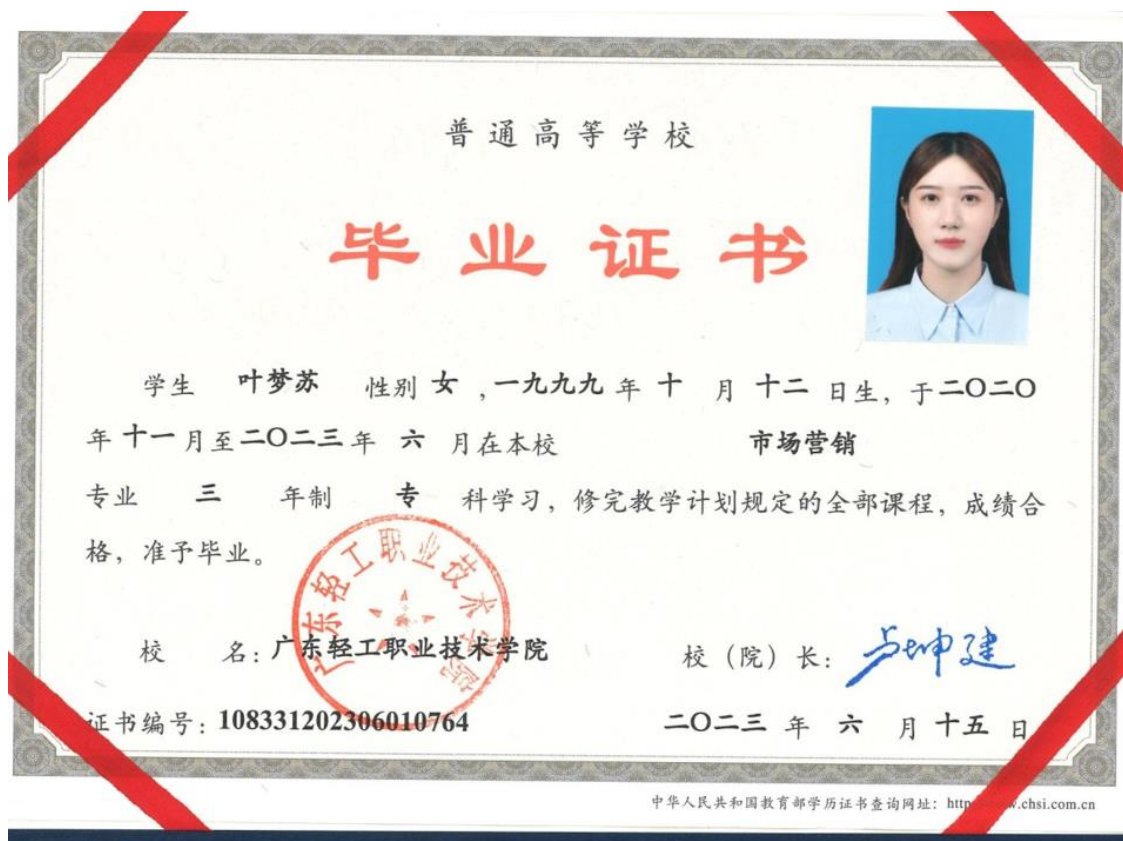 普通高等学校
毕业证书
学生 叶梦苏 性别 女 ,一九九九 年 十 月 十二 日生, 于二〇二〇
年 十一 月至 二〇二三 年 六 月在本校 市场营销
专业 三 年制 专 科学习, 修完教学计划规定的全部课程, 成绩合
格, 准予毕业。
广东轻工职业技术学院
校 名: 广东轻工职业技术学院 校(院)长: 卢坤建
证书编号: 108331202306010764 二〇二三 年 六 月 十五 日
中华人民共和国教育部学历证书查询网址: http w.chsi.com.cn